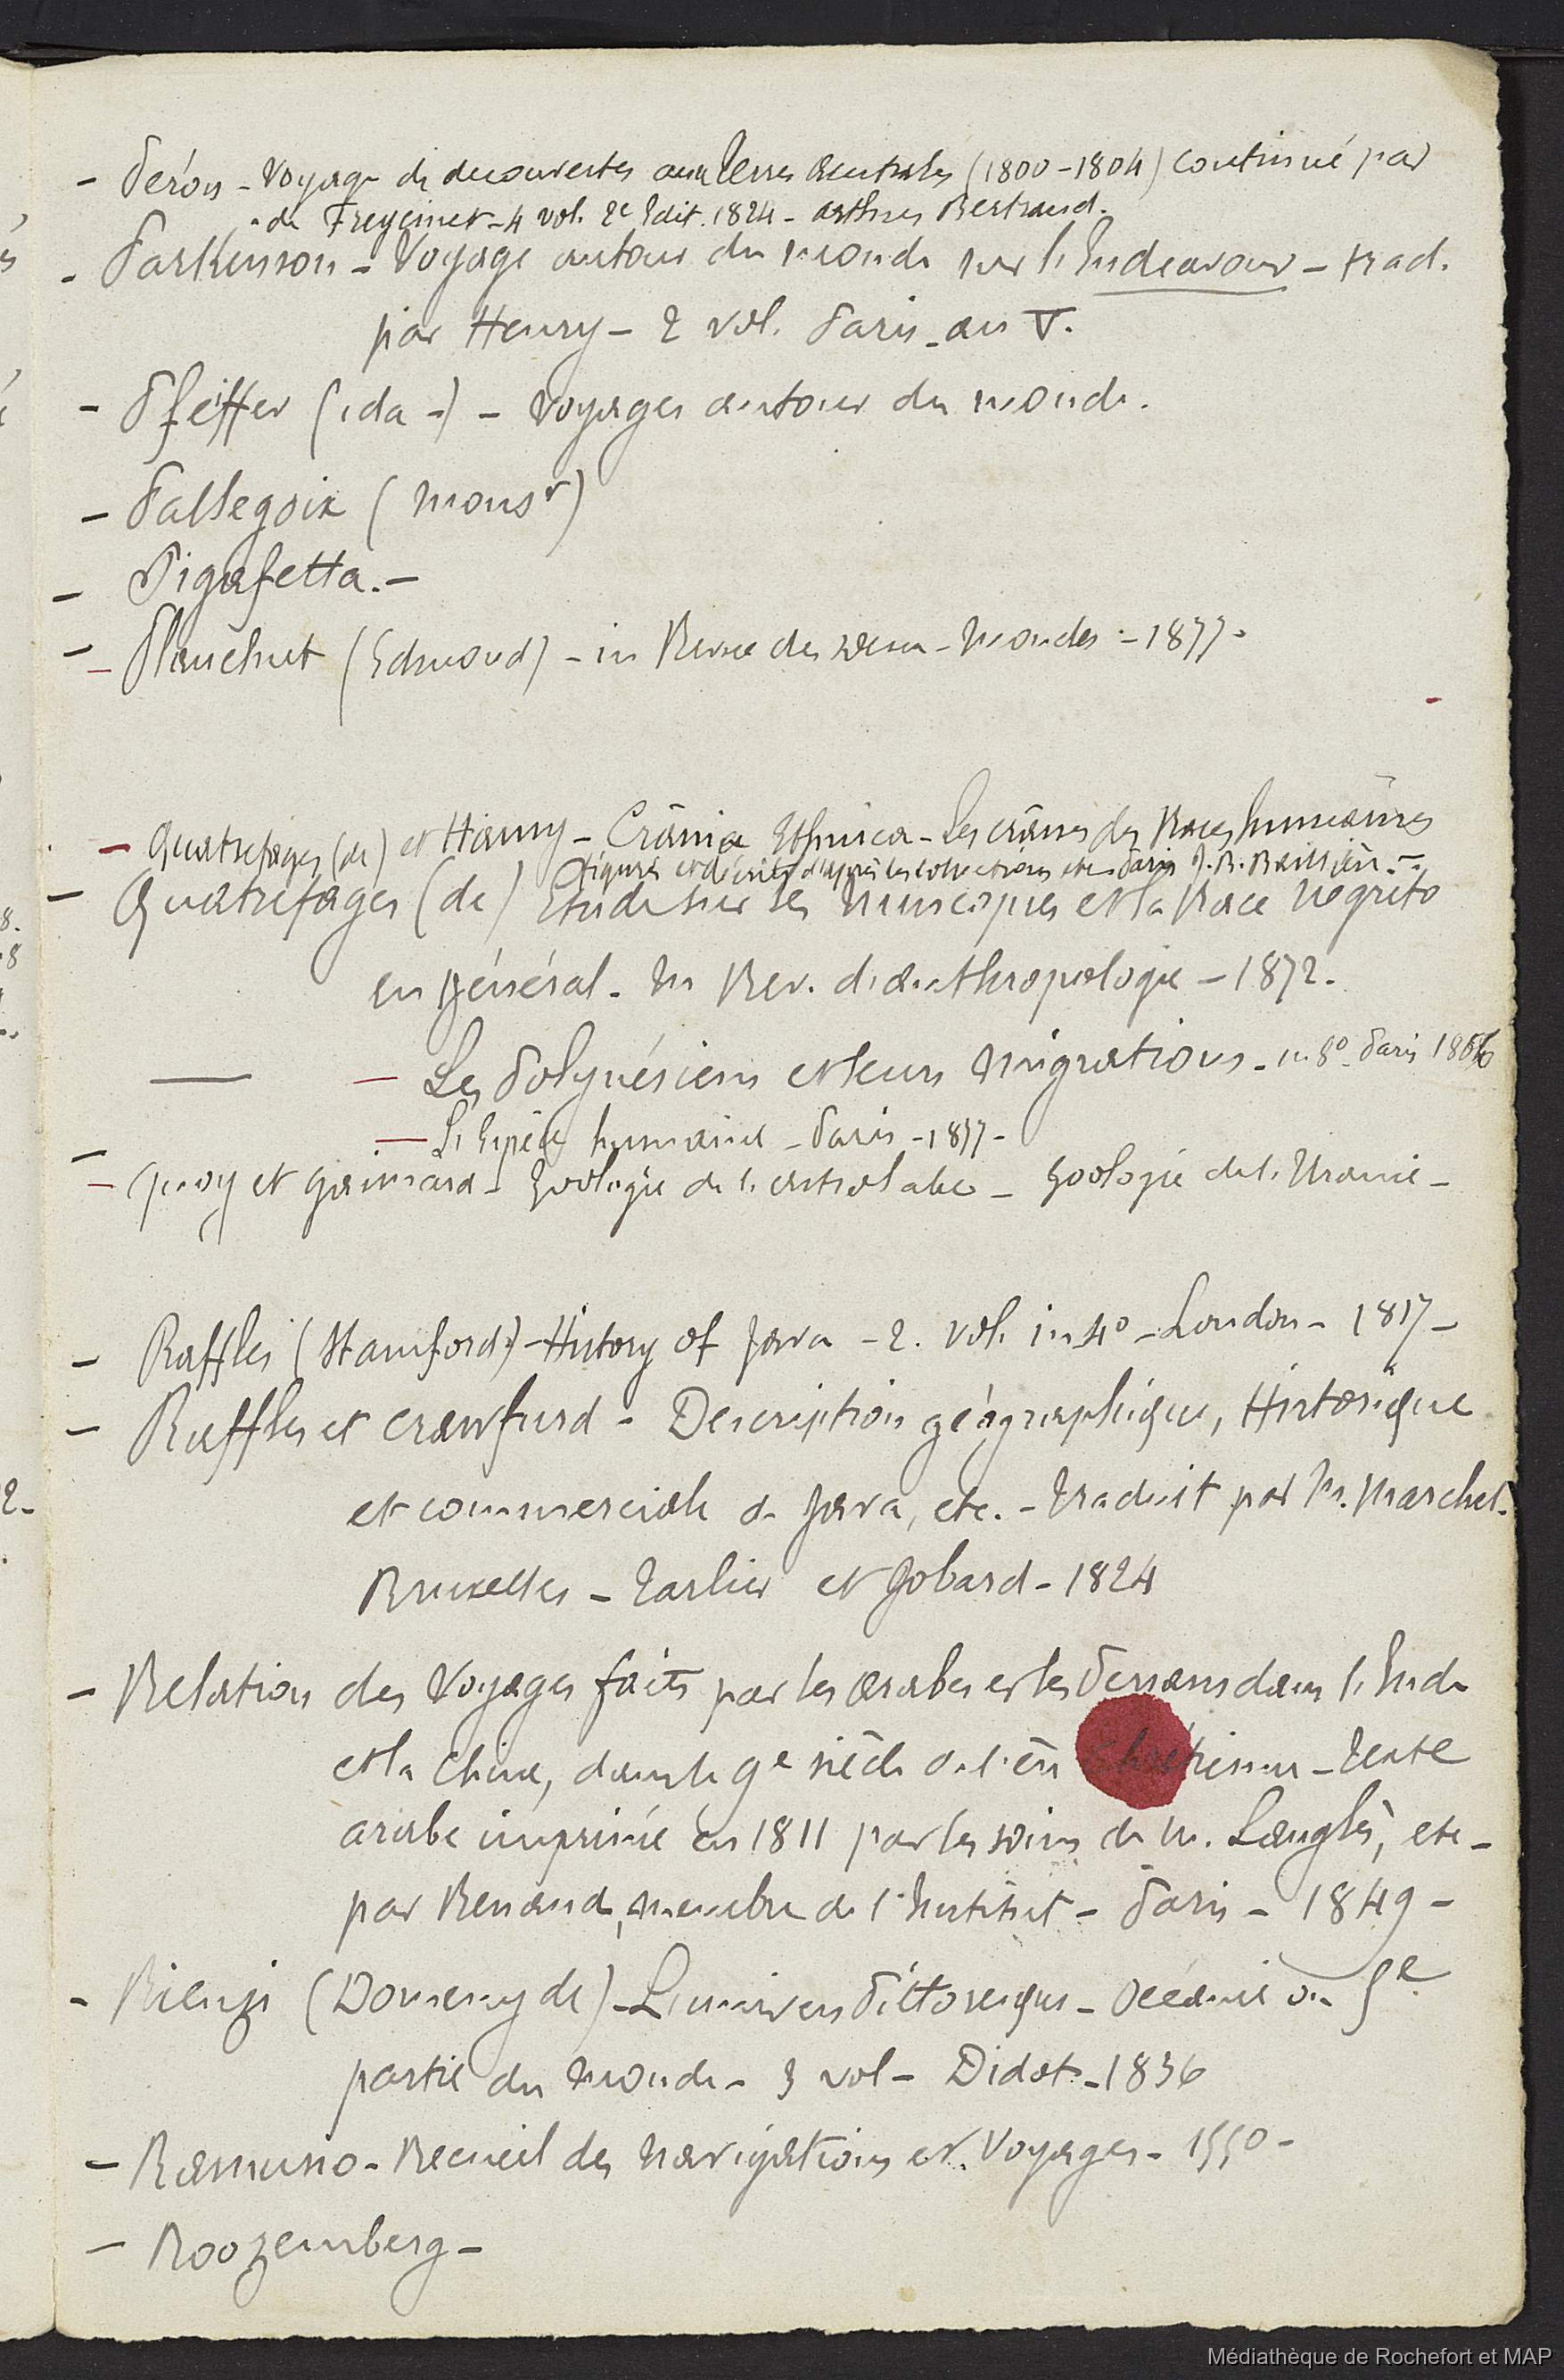 - Péron - Voyage de decouvertes aux terres australes (1800-1804) continué par
- de Freycinet - 4 vol. 2e Edit. 1824 - Arthus Bertrand.
- Parkinson - Voyage autour du monde sur l'Endeavour - trad.
par Henry - 2 vol. Paris - an V.
- Pfeiffer (ida -) - Voyages autour du monde.
- Pallegoix (Monsr)
- Pigafetta. -
- Plauchut (Edmond) - in Revue des deux-Mondes - 1877.
- Quatrefages (de) et Hamy - Crânia Ethnica - Les crânes des Races humaines
figurés et décrits d'après les collections etc. Paris J. B. Baillière. -
- Quatrefages (de) Etude sur les Mincopies et la Race Negrito
en général - in Rev. d'anthropologie - 1872.
— - Les Polynésiens et leurs Migrations - in 8o - Paris 1866
- L'Espèce humaine - Paris - 1877 -
- Quoy et Gaimard - Zoologie de l'astrolabe - Zoologie de l'Uranie -
- Raffles (Stamford) - History of Java - 2. vol. in 4o - London - 1817 -
- Raffles et Crawfurd - Description géographique, Historique
et commerciale de Java, etc. - traduit par M. Marchal.
Bruxelles - Tarlier et Jobard - 1824
- Relation des Voyages faits par les arabes et les Persans dans l'Inde
et la Chine, dans le 9e siècle de l'ère chrétienne - Texte
arabe imprimé en 1811 par les soins de M. Langlès, etc -
par Renaud, membre de l'Institut - Paris - 1849 -
- Rienzi (Domeny de) - L'univers Pittoresque - Océanie ou 5e
partie du Monde - 3 vol - Didot - 1836
- Ramusio - Recueil des Navigations et Voyages - 1550 -
- Roozemberg -
Médiathèque de Rochefort et MAP